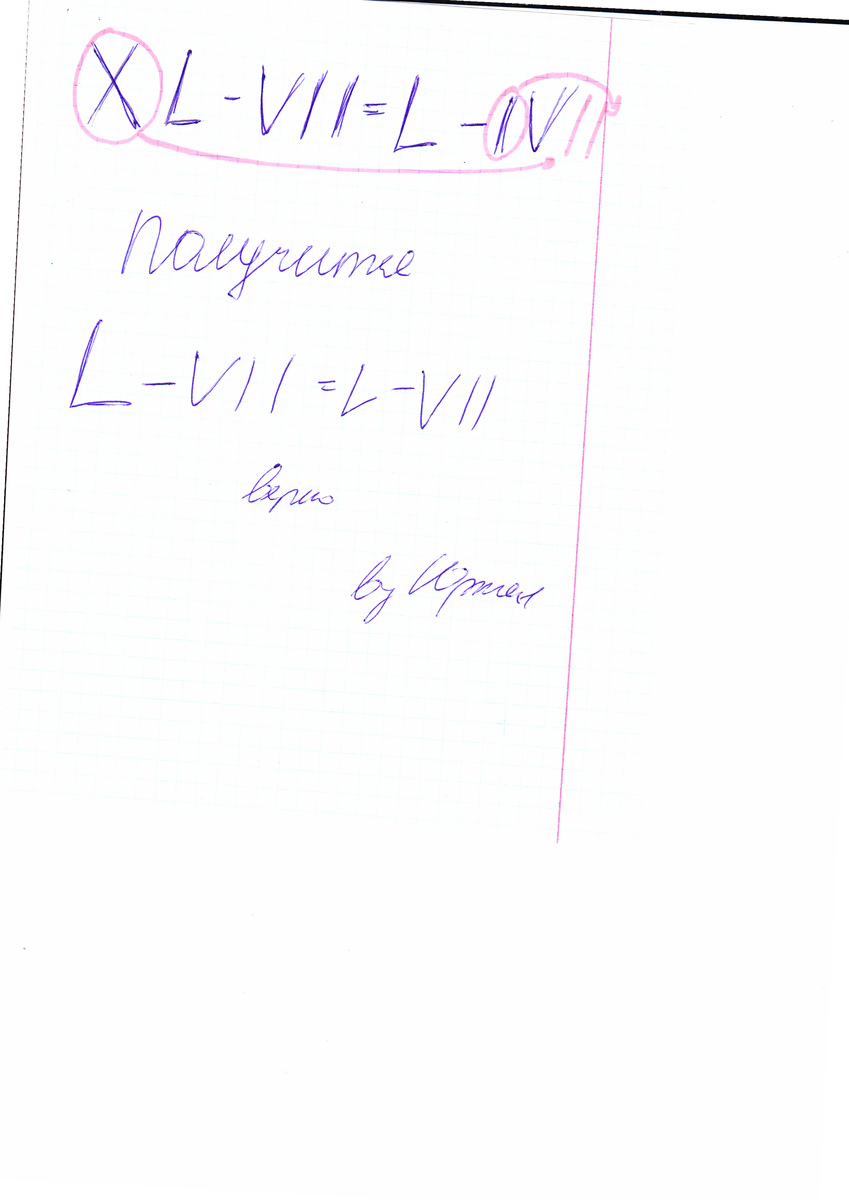 XL - VII = L - IVII
Получитсе
L - VII = L - VII
верно
by